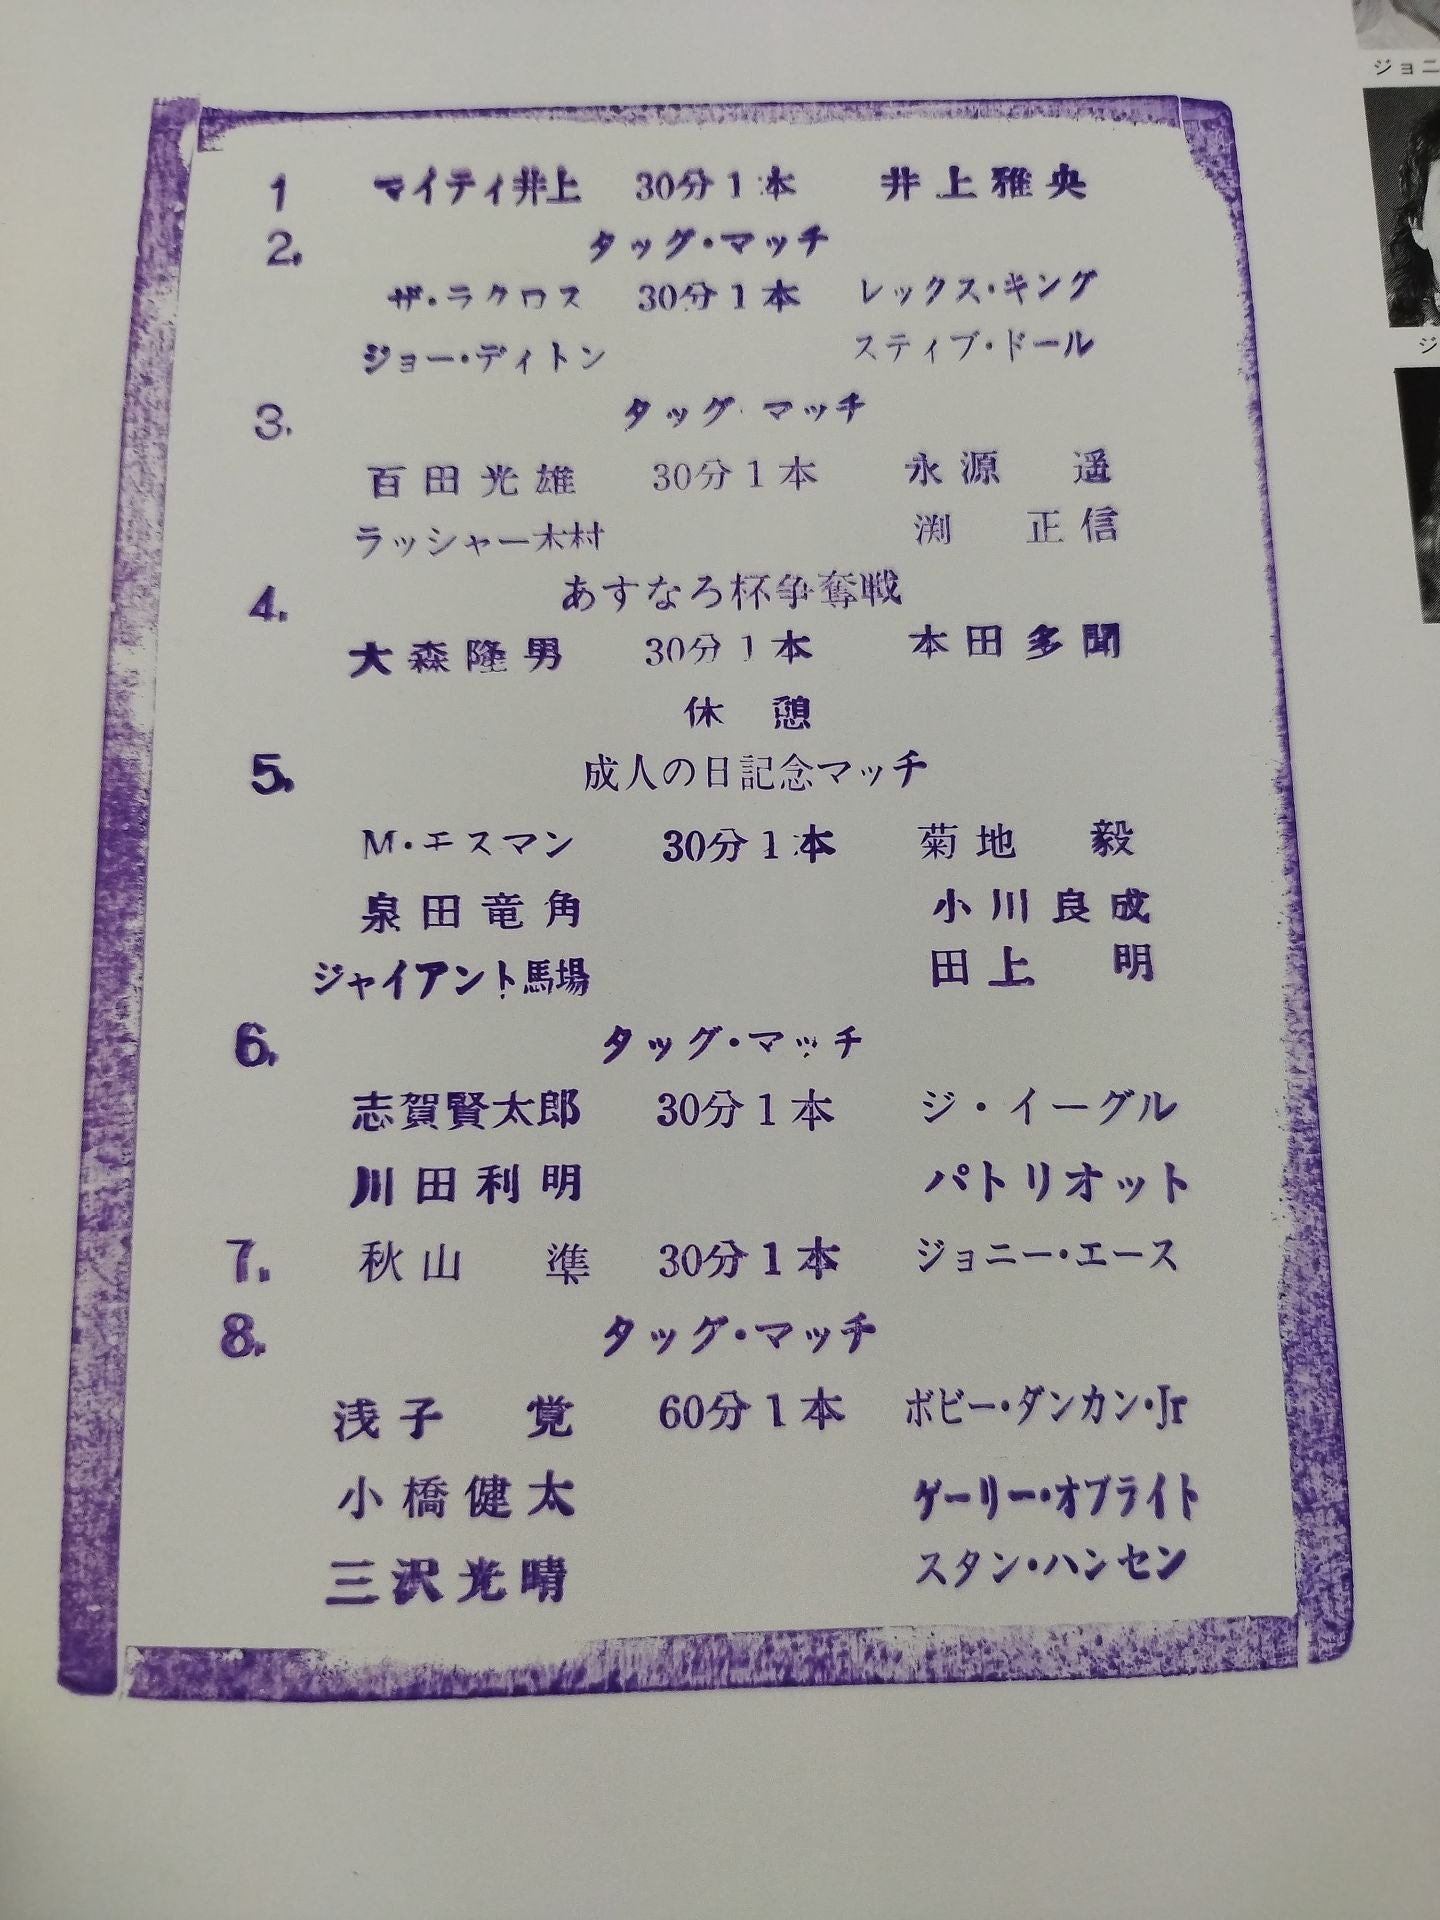 ジョニ
ジ
1 マイティ井上 30分1本 井上雅央
2. タッグ・マッチ
ザ・ラクロス 30分1本 レックス・キング
ジョー・ディトン スティブ・ドール
3. タッグ マッチ
百田光雄 30分1本 永源 遥
ラッシャー木村 渕 正信
4. あすなろ杯争奪戦
大森隆男 30分1本 本田多聞
休 憩
5. 成人の日記念マッチ
M・エスマン 30分1本 菊地 毅
泉田竜角 小川良成
ジャイアント馬場 田上 明
6. タッグ・マッチ
志賀賢太郎 30分1本 ジ・イーグル
川田利明 パトリオット
7. 秋山 準 30分1本 ジョニー・エース
8. タッグ・マッチ
浅子 覚 60分1本 ボビー・ダンカン・Jr
小橋健太 ゲーリー・オブライト
三沢光晴 スタン・ハンセン